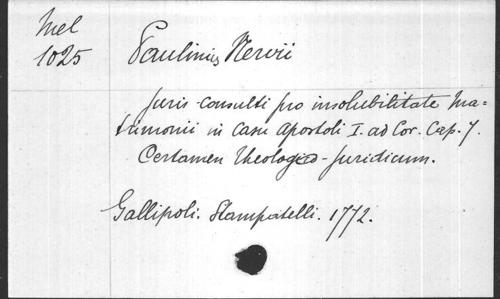 Mel
1025
Paulinus Nervii
Juris consulti pro insolubilitate Ma-
trimonii in casu Apostoli I. ad Cor. Cap. 7.
Certamen Theologico-Juridicum.
Gallipoli. Stampatelli. 1772.